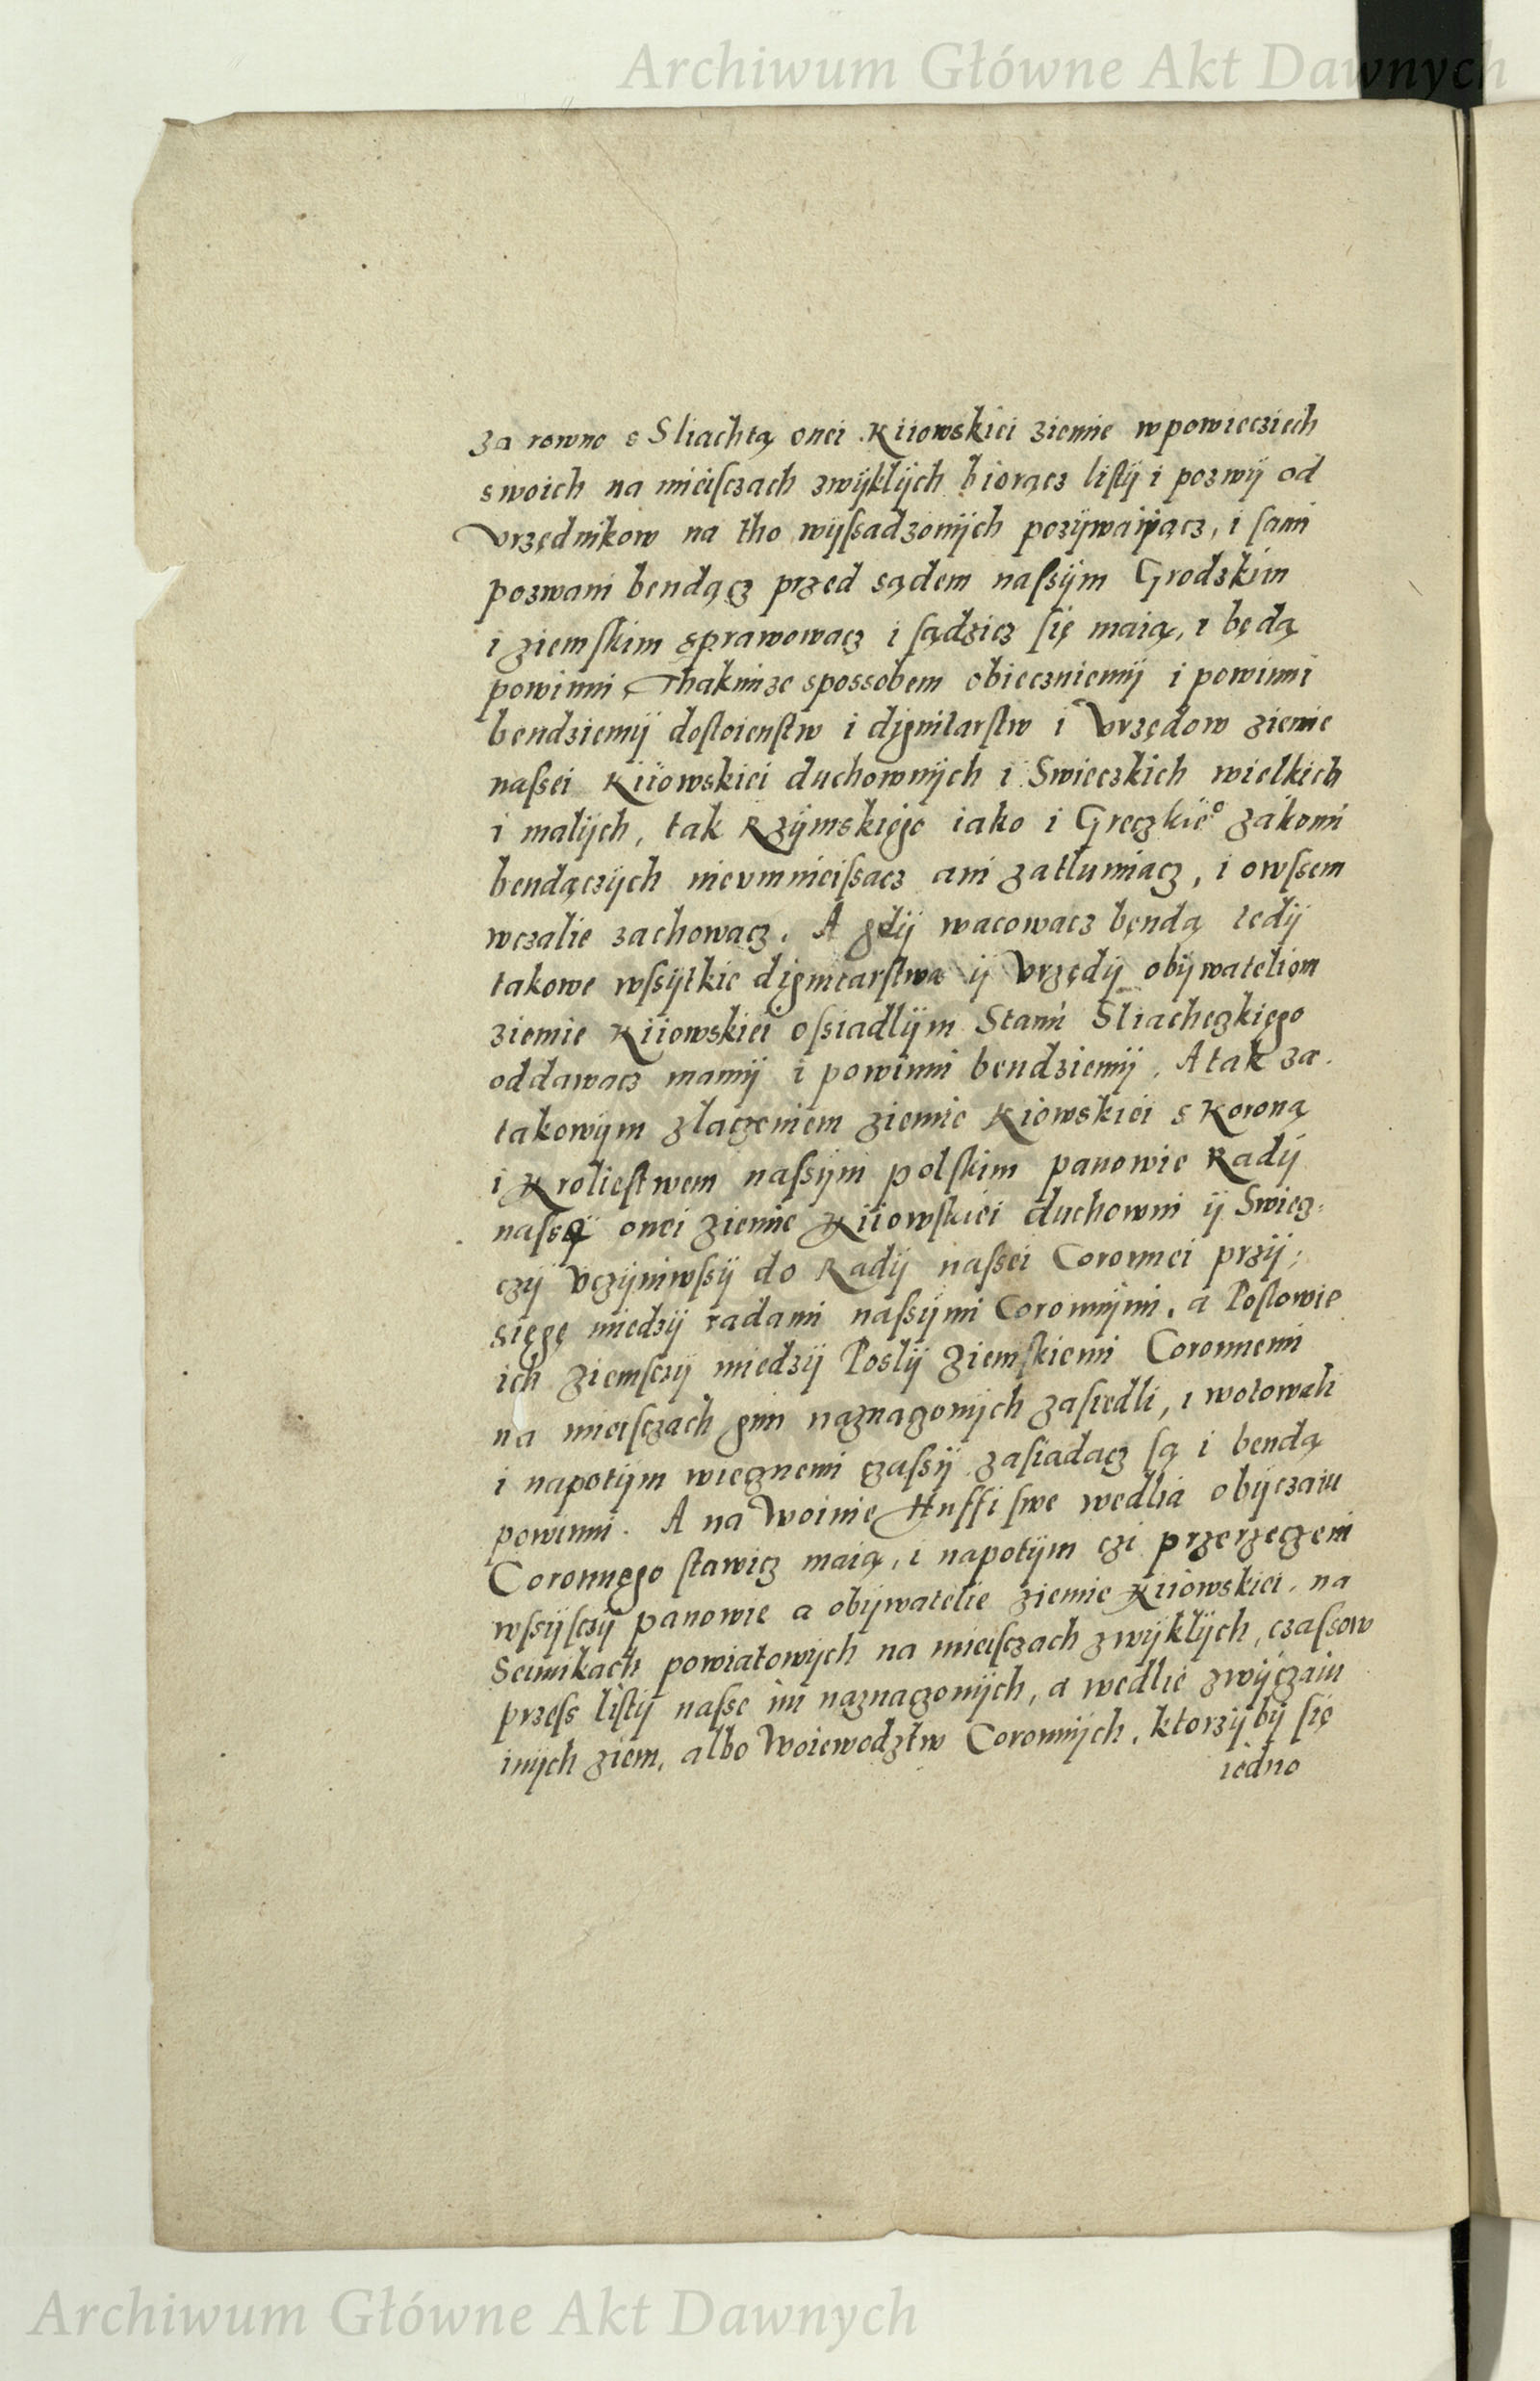 Archiwum Główne Akt Dawnych
za rowno s Sliachtą onei Kiiowskiei ziemie wpowieciech
swoich na mieisczach zwÿklÿch biorącz listÿ i pozwÿ od
Vrzędnikow na tho wÿssadzonÿch pozÿwaiącz, i sami
pozwani bendącz przed sądem nassÿm Grodzkim
i ziemskim sprawowacz i sądzicz się maią, i będą
powinni, Thakimze spossobem obieczniemÿ i powinni
bendziemÿ dostoienstw i dignitarstw i Vrzędow ziemie
nassei Kiiowskiei duchownÿch i Swieczkich wielkich
i malÿch, tak Rzÿmskiego iako i Greczkie° zakonu
bendączÿch nieumnieissacz ani zatlumiacz, i owssem
wczalie zachowacz. A gdÿ wacowacz bendą tedÿ
takowe wssÿtkie dignitarstwa ÿ Vrzędÿ obÿwateliom
ziemie Kiiowskiei ossiadlÿm Stanu Sliacheczkięgo
oddawacz mamÿ i powinni bendziemÿ. A tak za
takowÿm zlaczeniem ziemie Kiowskiei s Koroną
i Kroliestwem nassÿm polskim panowie Radÿ
nassÿ onei ziemie Kiiowskiei duchowni ÿ Swiecz:
czÿ vczÿniwssÿ do Radÿ nassei Coronnei przÿ:
sięgę miedzÿ radami nassÿmi Coronnÿmi, a Poslowie
ich ziemsczÿ miedzÿ Poslÿ Ziemskiemi Coronnemi
na mieisczach gim naznaczonÿch zasiedli, i wotowali
i napotÿm wiecznemi czassÿ zasiadacz są i bendą
powinni. A na Woinie Huffi swe wedlia obÿczaiu
Coronnęgo stawicz maią, i napotÿm czi przerzeczeni
wssÿsczÿ panowie a obÿwatelie ziemie Kiiowskiei, na
Seimikach powiatowÿch na mieisczach zwÿklÿch, czassow
przess listÿ nasse im naznaczonÿch, a wedlie zwÿczaiu
inÿch ziem, albo Woiewodztw Coronnÿch, ktorzÿ bÿ się
iedno
Archiwum Główne Akt Dawnych